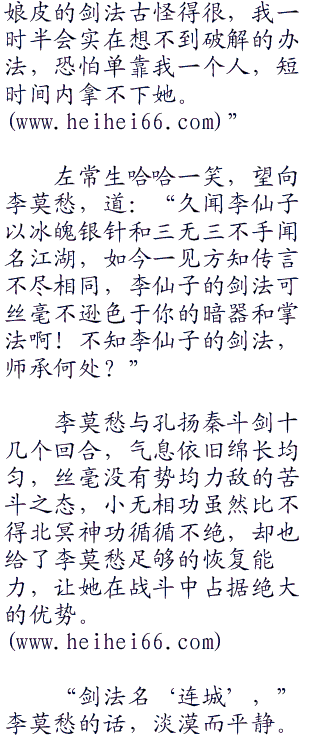 娘皮的剑法古怪得很，我一
时半会实在想不到破解的办
法，恐怕单靠我一个人，短
时间内拿不下她。
(www.heihei66.com)”
左常生哈哈一笑，望向
李莫愁，道：“久闻李仙子
以冰魄银针和三无三不手闻
名江湖，如今一见方知传言
不尽相同，李仙子的剑法可
丝毫不逊色于你的暗器和掌
法啊！不知李仙子的剑法，
师承何处？”
李莫愁与孔扬秦斗剑十
几个回合，气息依旧绵长均
匀，丝毫没有势均力敌的苦
斗之态，小无相功虽然比不
得北冥神功循循不绝，却也
给了李莫愁足够的恢复能
力，让她在战斗中占据绝大
的优势。
(www.heihei66.com)
“剑法名‘连城’，”
李莫愁的话，淡漠而平静。